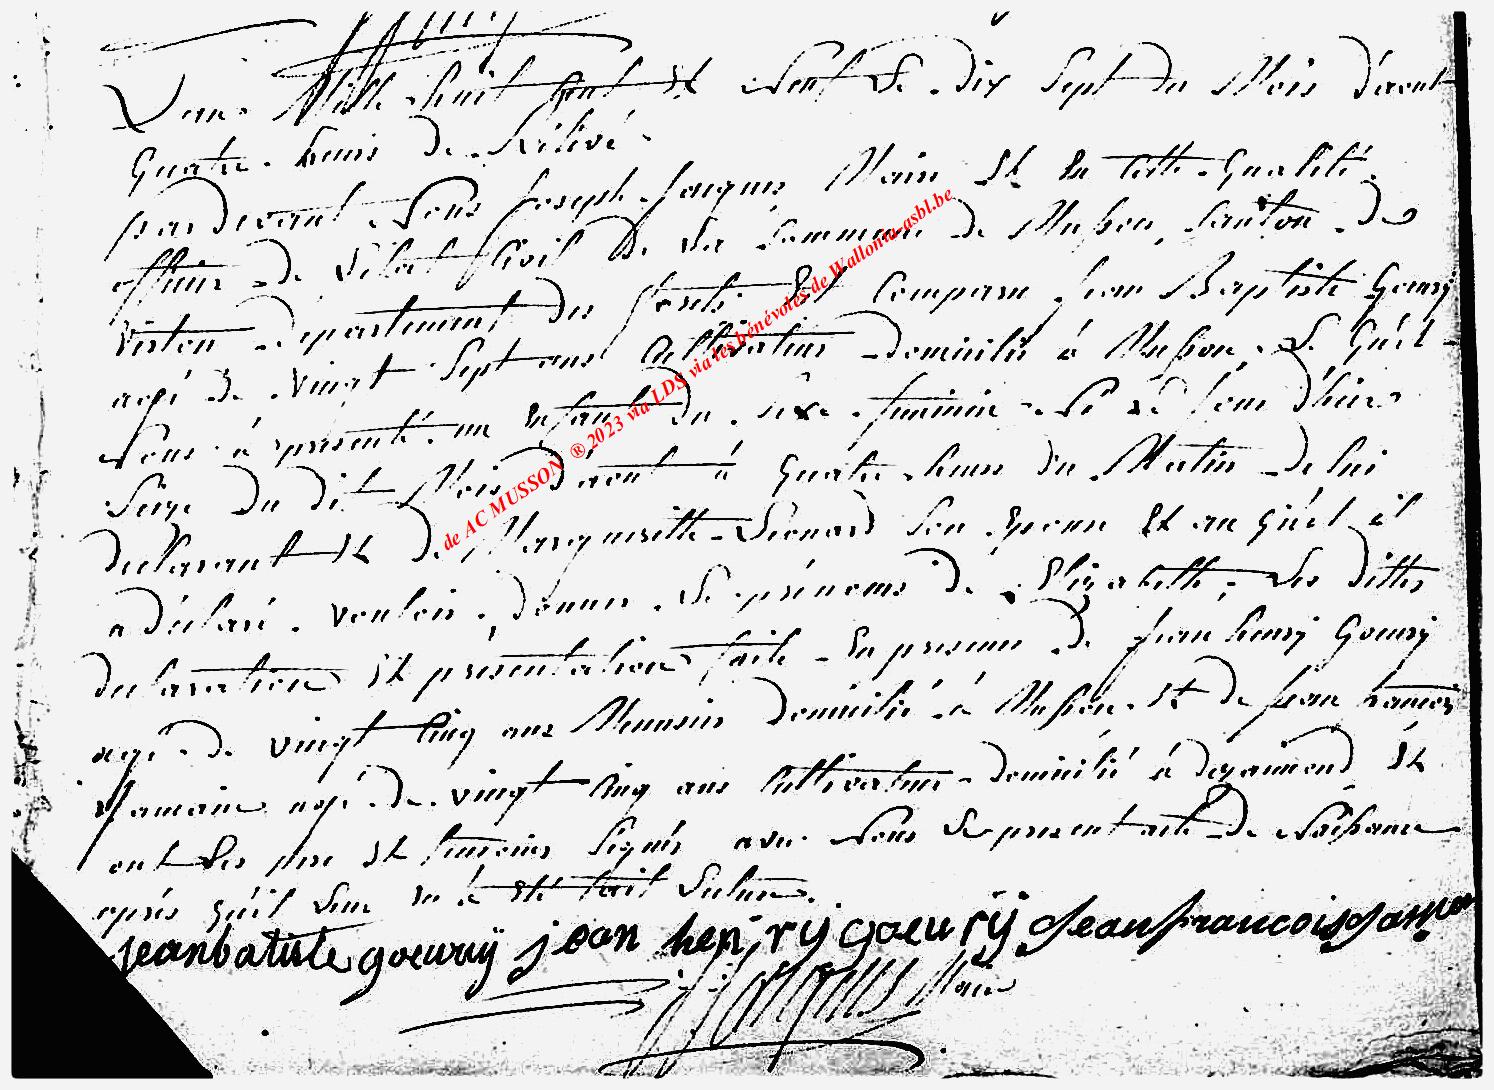 L'an Mille huit Cent et Neuf Le dix Sept du Mois d'aout
Quatre heures de Rélivé
pardevant Nous Joseph Jacques Maire Et En Cette Qualité
officier de L'Etat Civil de La Commune de Musson, Canton de
Virton departement des forets Est Comparu Jean Baptiste Goeury
agé de vingt Sept ans Cultivateur domicilié à Musson, Le Quel
Nous à présenté un Enfant du Sexe feminin Né Le Jour d'hier
Seize du dit Mois d'aout à Quatre heures du Matin de lui
declarant Et de Margueritte Léonard Son Epouse Et au Quel il
a déclaré vouloir donner Le prénoms de Elizabette; Les dittes
declaration Et présentation faite En presence de Jean henry Goeury
agé de vingt Cinq ans Menusier domicilié à Musson Et de Jean francois
agé de vingt Cinq ans Cultivateur domicilié à Et
ont Les pere Et temoins Signés avec Nous Le present acte de Naissance
aprés Qu'il Leur En à Eté fait Lecture.
jeanbatiste goeury jean henry goeury Jean francois
Maire
de AC MUSSON ®2023 via LDS via les bénévoles de Wallonia-asbl.be